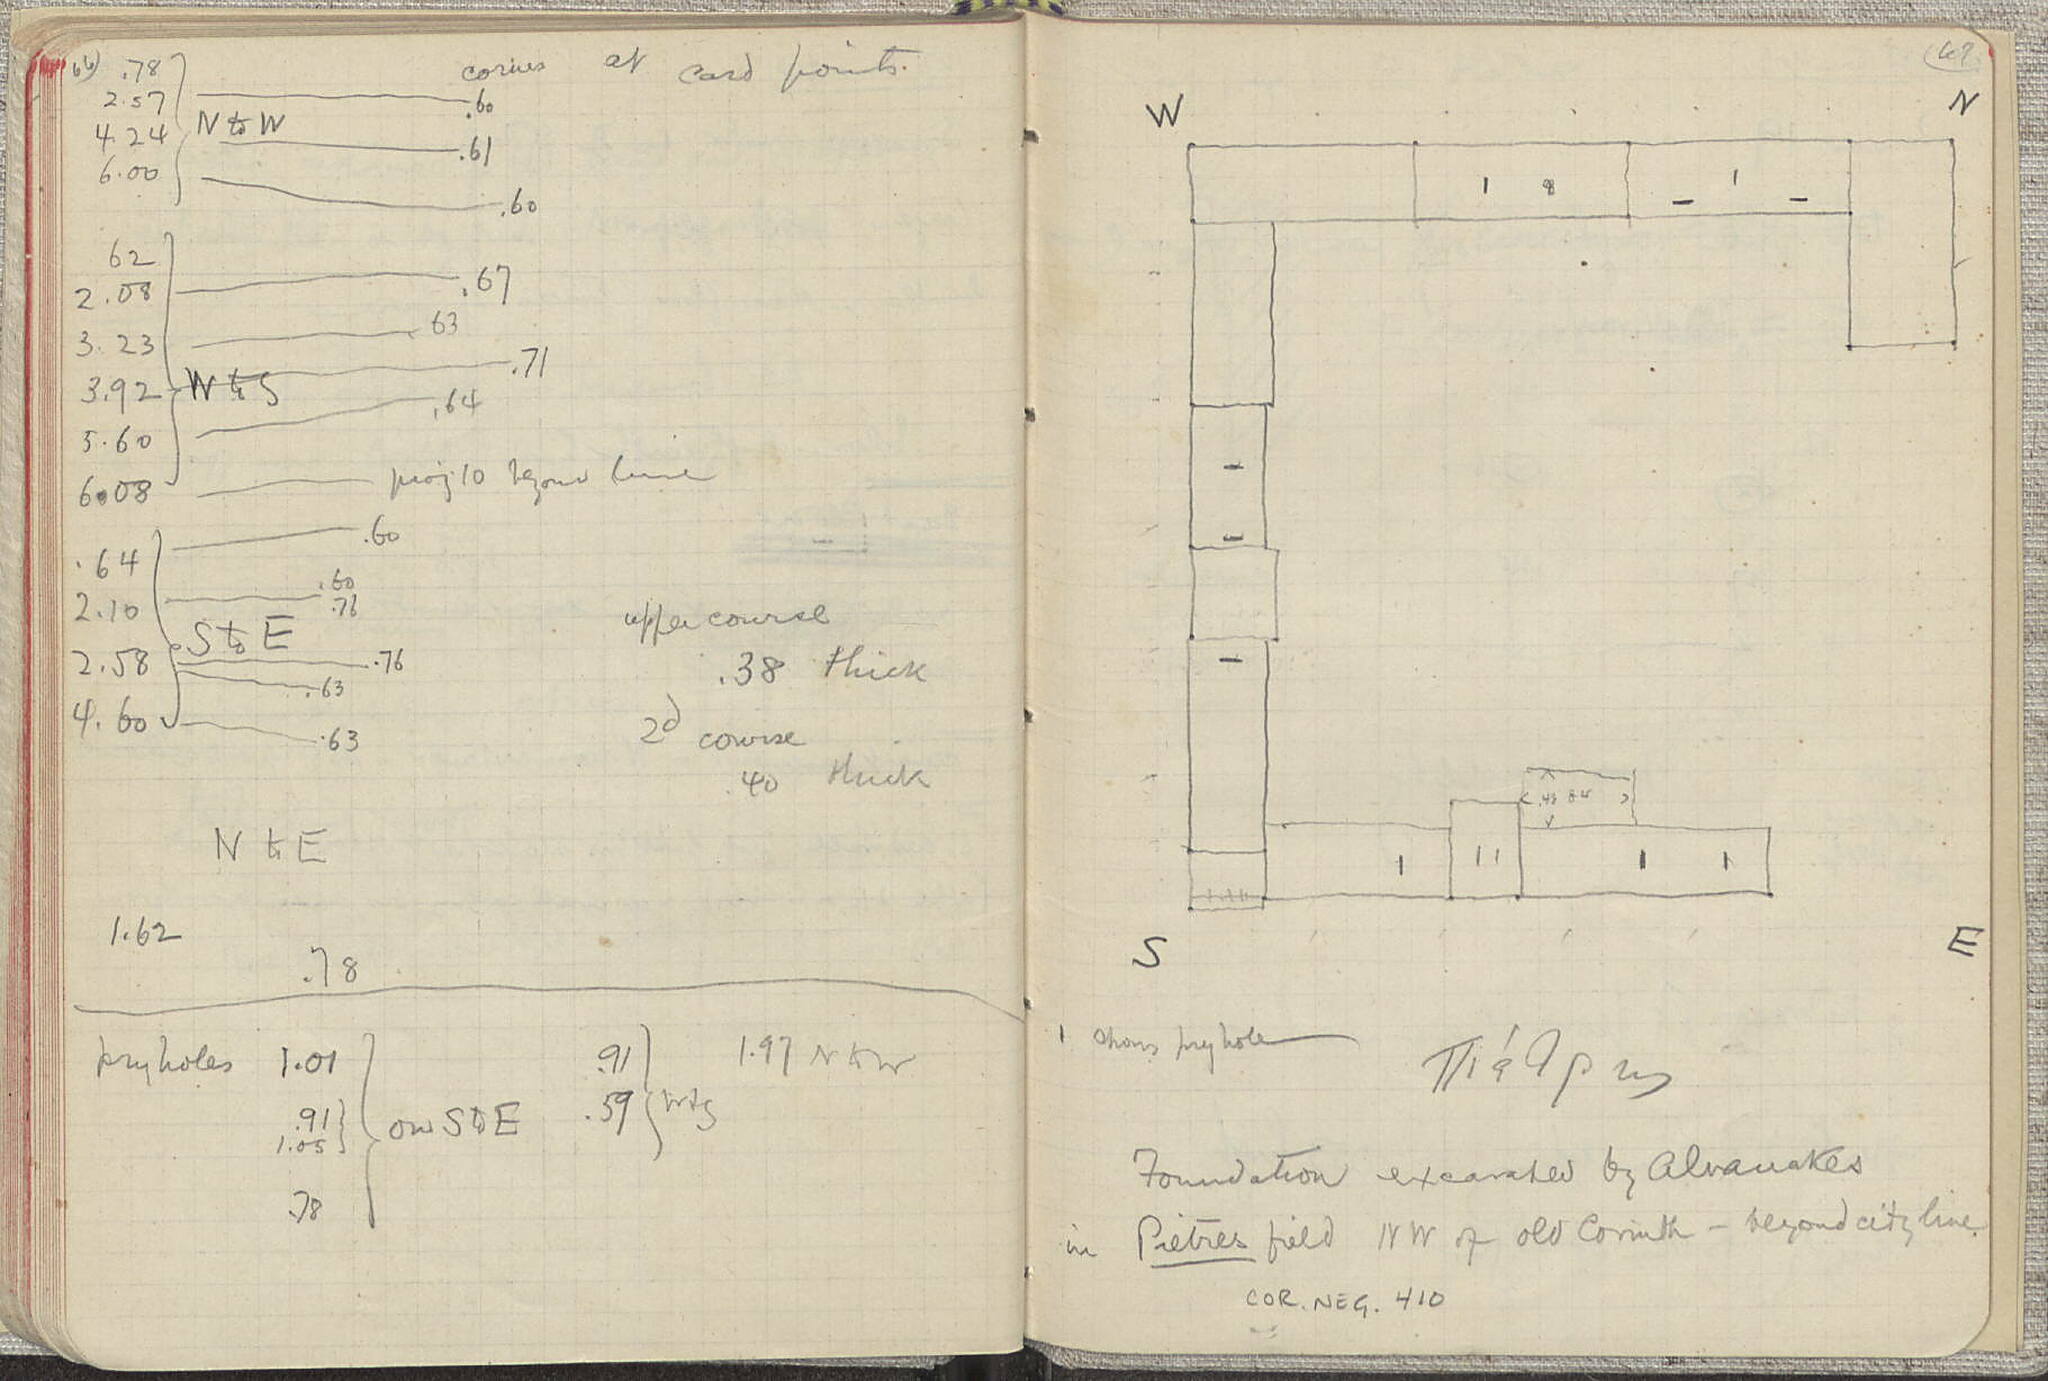 66) .78
corners at card points.
2.57
.60
4.24 N to W
.61
6.00
.60
62
2.08
.67
3.23
63
.71
3.92 W to S
.64
5.60
6.08
proj 10 beyond line
.60
.64
.60
2.10
.76
S to E
2.58
.76
.63
4.60
.63
upper course
.38 thick
2d course
.40 thick
N to E
1.62
.78
pryholes 1.01
.91
1.05
.78
on S to E
.91
.59
W to S
1.97 N to W
67
W
N
.43 84
S
E
1 shows pryhole
Foundation excavated by Alvanakes
in Pietres field NW of old Corinth – beyond city line.
COR. NEG. 410